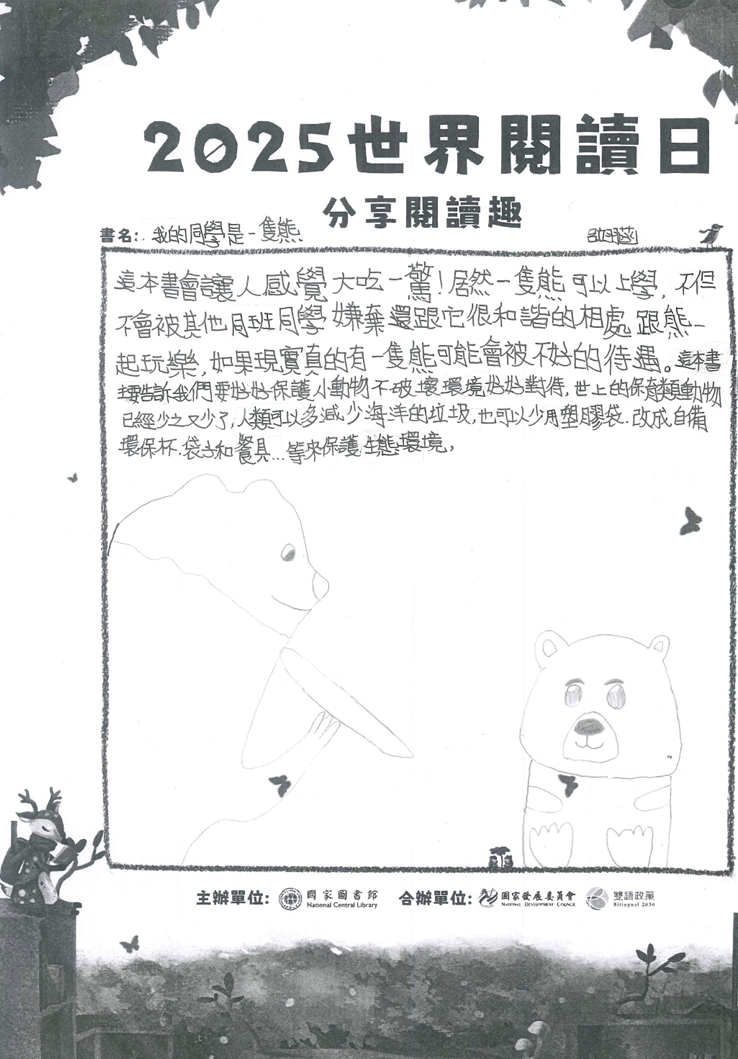 2025世界閱讀日
分享閱讀趣
書名: 我的同學是一隻熊
這本書會讓人感覺大吃一驚!居然一隻熊可以上學,不但
不會被其他同班同學嫌棄還跟它很和諧的相處跟熊一
起玩樂,如果現實真的有一隻熊可能會被不好的待遇。這本書
主要告訴我們要好好保護小動物不破壞環境好好對待,世上的保育類動物
已經少之又少了,人類可以多減少海洋的垃圾,也可以少用塑膠袋.改成自備
環保杯.袋子和餐具...等來保護生態環境,
主辦單位: 國家圖書館 National Central Library 合辦單位: 國家發展委員會 National Development Council 雙語政策 Bilingual 2030